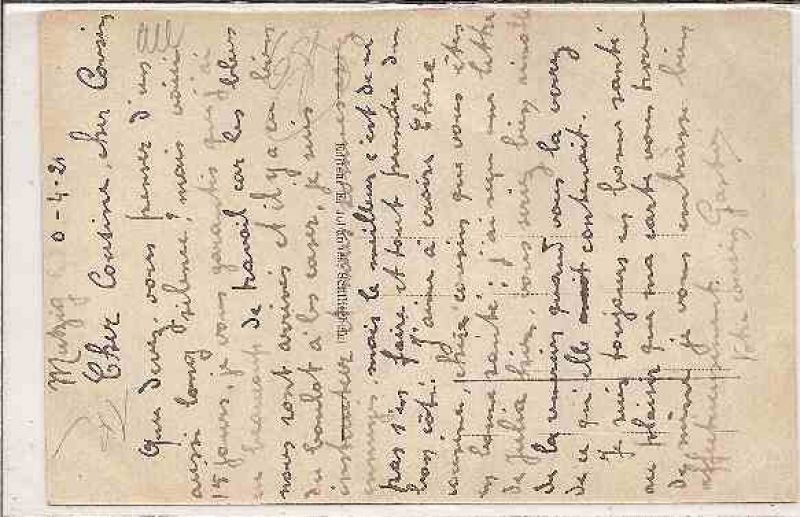 Mutzig 0-4-21
Cher Cousine, cher Cousin
Que devez vous penser d'un
aussi long silence, mais voici
15 jours, je vous garantis que j'ai
eu beaucoup de travail car les bleus
nous sont arrivés et il y a eu bien
du boulot à les caser, je suis
mais le meilleur c'est de ne
pas s'en faire et tout prendre du
bon côté. J'aime à croire chère
cousine, cher cousin que vous êtes
en bonne santé; j'ai reçu une lettre
de Julia hier, vous serez bien
de la quand vous la
de ce qu'elle contenait.
Je suis toujours en bonne santé
au plaisir que ma carte vous trouve
de même je vous embrasse bien
affectueusement.
cousin Gaston